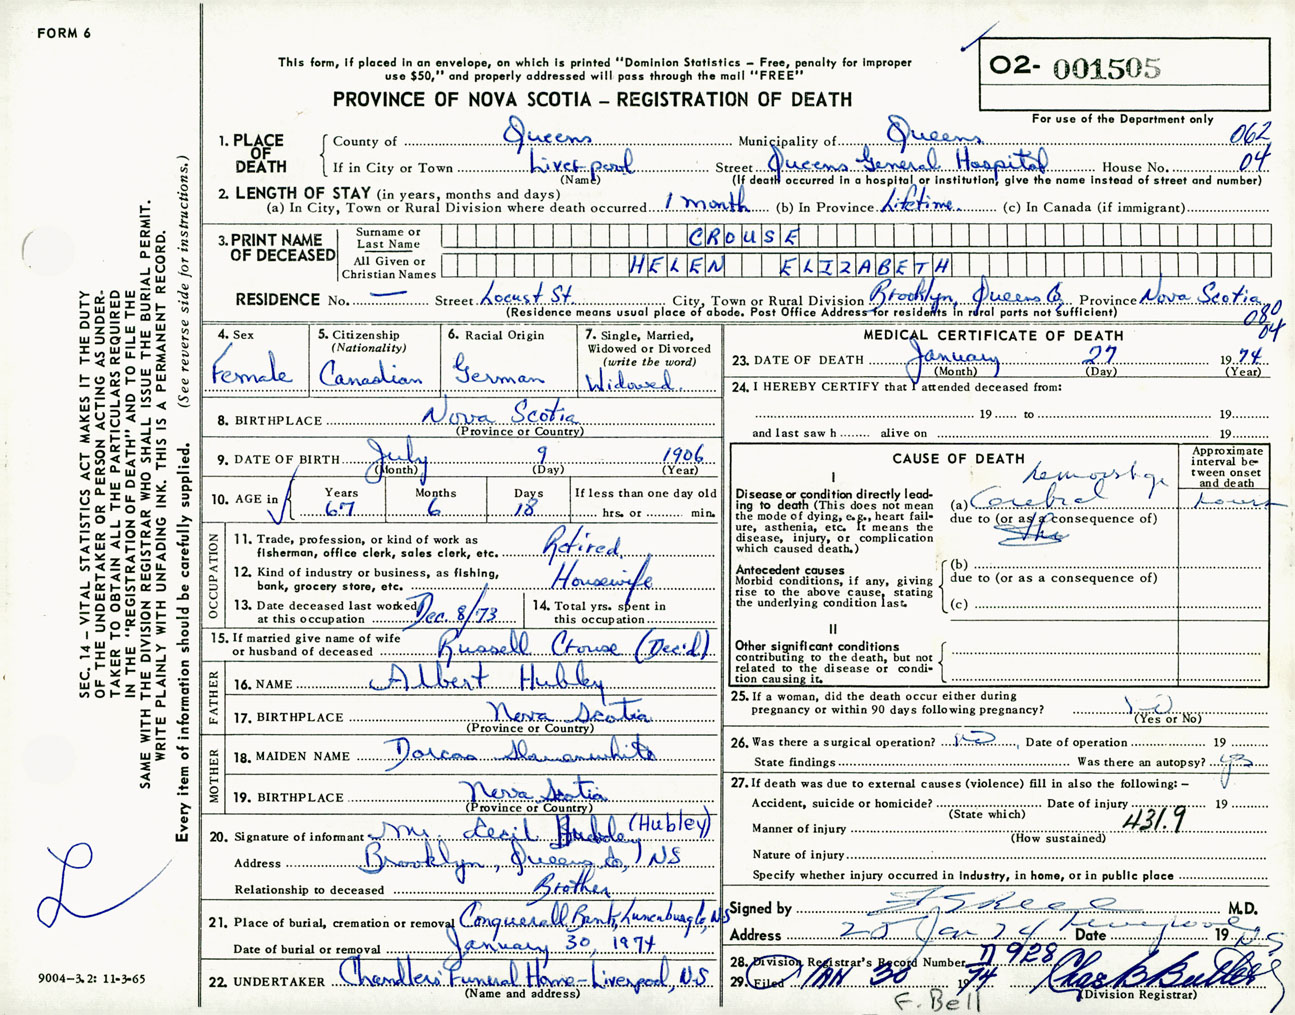 FORM 6
This form, if placed in an envelope, on which is printed "Dominion Statistics – Free, penalty for improper
use $50," and properly addressed will pass through the mail "FREE"
O2- 001505
PROVINCE OF NOVA SCOTIA – REGISTRATION OF DEATH
For use of the Department only
1. PLACE OF DEATH County of Queens Municipality of Queens 062
If in City or Town Liverpool Street Queens General Hospital House No. 04
(Name) (If death occurred in a hospital or institution, give the name instead of street and number)
2. LENGTH OF STAY (in years, months and days)
(a) In City, Town or Rural Division where death occurred 1 month (b) In Province Lifetime. (c) In Canada (if immigrant)
3. PRINT NAME OF DECEASED
Surname or Last Name CROUSE
All Given or Christian Names HELEN ELIZABETH
RESIDENCE No. — Street Locust St. City, Town or Rural Division Brooklyn, Queens Co. Province Nova Scotia
(Residence means usual place of abode. Post Office Address for residents in rural parts not sufficient)
080
04
4. Sex Female
5. Citizenship (Nationality) Canadian
6. Racial Origin German
7. Single, Married, Widowed or Divorced (write the word) Widowed
8. BIRTHPLACE Nova Scotia
(Province or Country)
9. DATE OF BIRTH July 9 1906
(Month) (Day) (Year)
10. AGE in Years 67 Months 6 Days 18 If less than one day old hrs. or min.
OCCUPATION
11. Trade, profession, or kind of work as fisherman, office clerk, sales clerk, etc. Retired
12. Kind of industry or business, as fishing, bank, grocery store, etc. Housewife
13. Date deceased last worked at this occupation Dec. 8/73
14. Total yrs. spent in this occupation
15. If married give name of wife or husband of deceased Russell Crouse (Dec'd)
FATHER
16. NAME Albert Hubley
17. BIRTHPLACE Nova Scotia
(Province or Country)
MOTHER
18. MAIDEN NAME Dorcas Slauenwhite
19. BIRTHPLACE Nova Scotia
(Province or Country)
20. Signature of informant Mr. Cecil Hubley (Hubley)
Address Brooklyn, Queens Co, NS
Relationship to deceased Brother
21. Place of burial, cremation or removal Conquerall Bank, Lunenburg Co, NS
Date of burial or removal January 30, 1974
22. UNDERTAKER Chandlers' Funeral Home – Liverpool, N.S
(Name and address)
MEDICAL CERTIFICATE OF DEATH
23. DATE OF DEATH January 27 1974
(Month) (Day) (Year)
24. I HEREBY CERTIFY that I attended deceased from:
19 to 19
and last saw h alive on 19
CAUSE OF DEATH
Approximate interval between onset and death
I
Disease or condition directly leading to death (This does not mean the mode of dying, e.g., heart failure, asthenia, etc. It means the disease, injury, or complication which caused death.)
(a) Cerebral hemorrhage hours
due to (or as a consequence of)
Antecedent causes
Morbid conditions, if any, giving rise to the above cause, stating the underlying condition last.
(b)
due to (or as a consequence of)
(c)
II
Other significant conditions
contributing to the death, but not related to the disease or condition causing it.
25. If a woman, did the death occur either during pregnancy or within 90 days following pregnancy? no
(Yes or No)
26. Was there a surgical operation? no, Date of operation 19
State findings Was there an autopsy? yes
27. If death was due to external causes (violence) fill in also the following: –
Accident, suicide or homicide? Date of injury 19
(State which)
Manner of injury 431.9
(How sustained)
Nature of injury
Specify whether injury occurred in industry, in home, or in public place
Signed by M.D.
Address 28 Jan 74 Date Liverpool 19 N.S.
28. Division Registrar's Record Number 928
29. Filed JAN 30 1974 Chas B Butler
(Division Registrar)
F. Bell
SEC. 14 – VITAL STATISTICS ACT MAKES IT THE DUTY
OF THE UNDERTAKER OR PERSON ACTING AS UNDER-
TAKER TO OBTAIN ALL THE PARTICULARS REQUIRED
IN THE "REGISTRATION OF DEATH" AND TO FILE THE
SAME WITH THE DIVISION REGISTRAR WHO SHALL ISSUE THE BURIAL PERMIT.
WRITE PLAINLY WITH UNFADING INK. THIS IS A PERMANENT RECORD.
Every item of information should be carefully supplied. (See reverse side for instructions.)
9004–3.2: 11-3-65